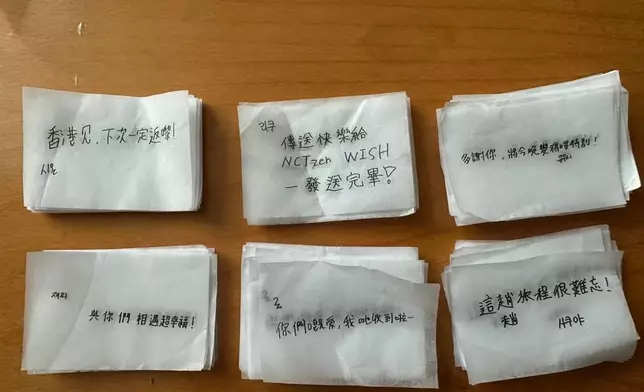 香港见，下次一定返嚟!
시온
리쿠
傳送快樂給
NCTzen WISH
一發送完畢!
多謝你，將今晚變得咁特別!
재희
与你們 相遇超幸福!
료
你們嘅愛，我哋收到啦~
這趟旅程很難忘!
趙
사쿠야